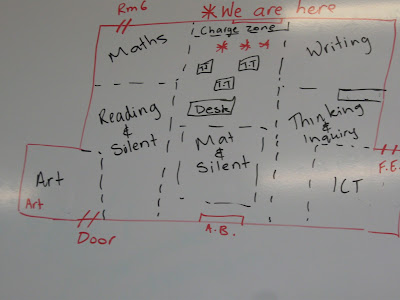 Rm6
*We are here
Charge Zone
* * *
Maths
Writing
T.T
T.T
T.T
Desk
Reading
&
Silent
Thinking
&
Inquiry
Mat
&
Silent
Art
Art
ICT
F.E.
A.B.
Door